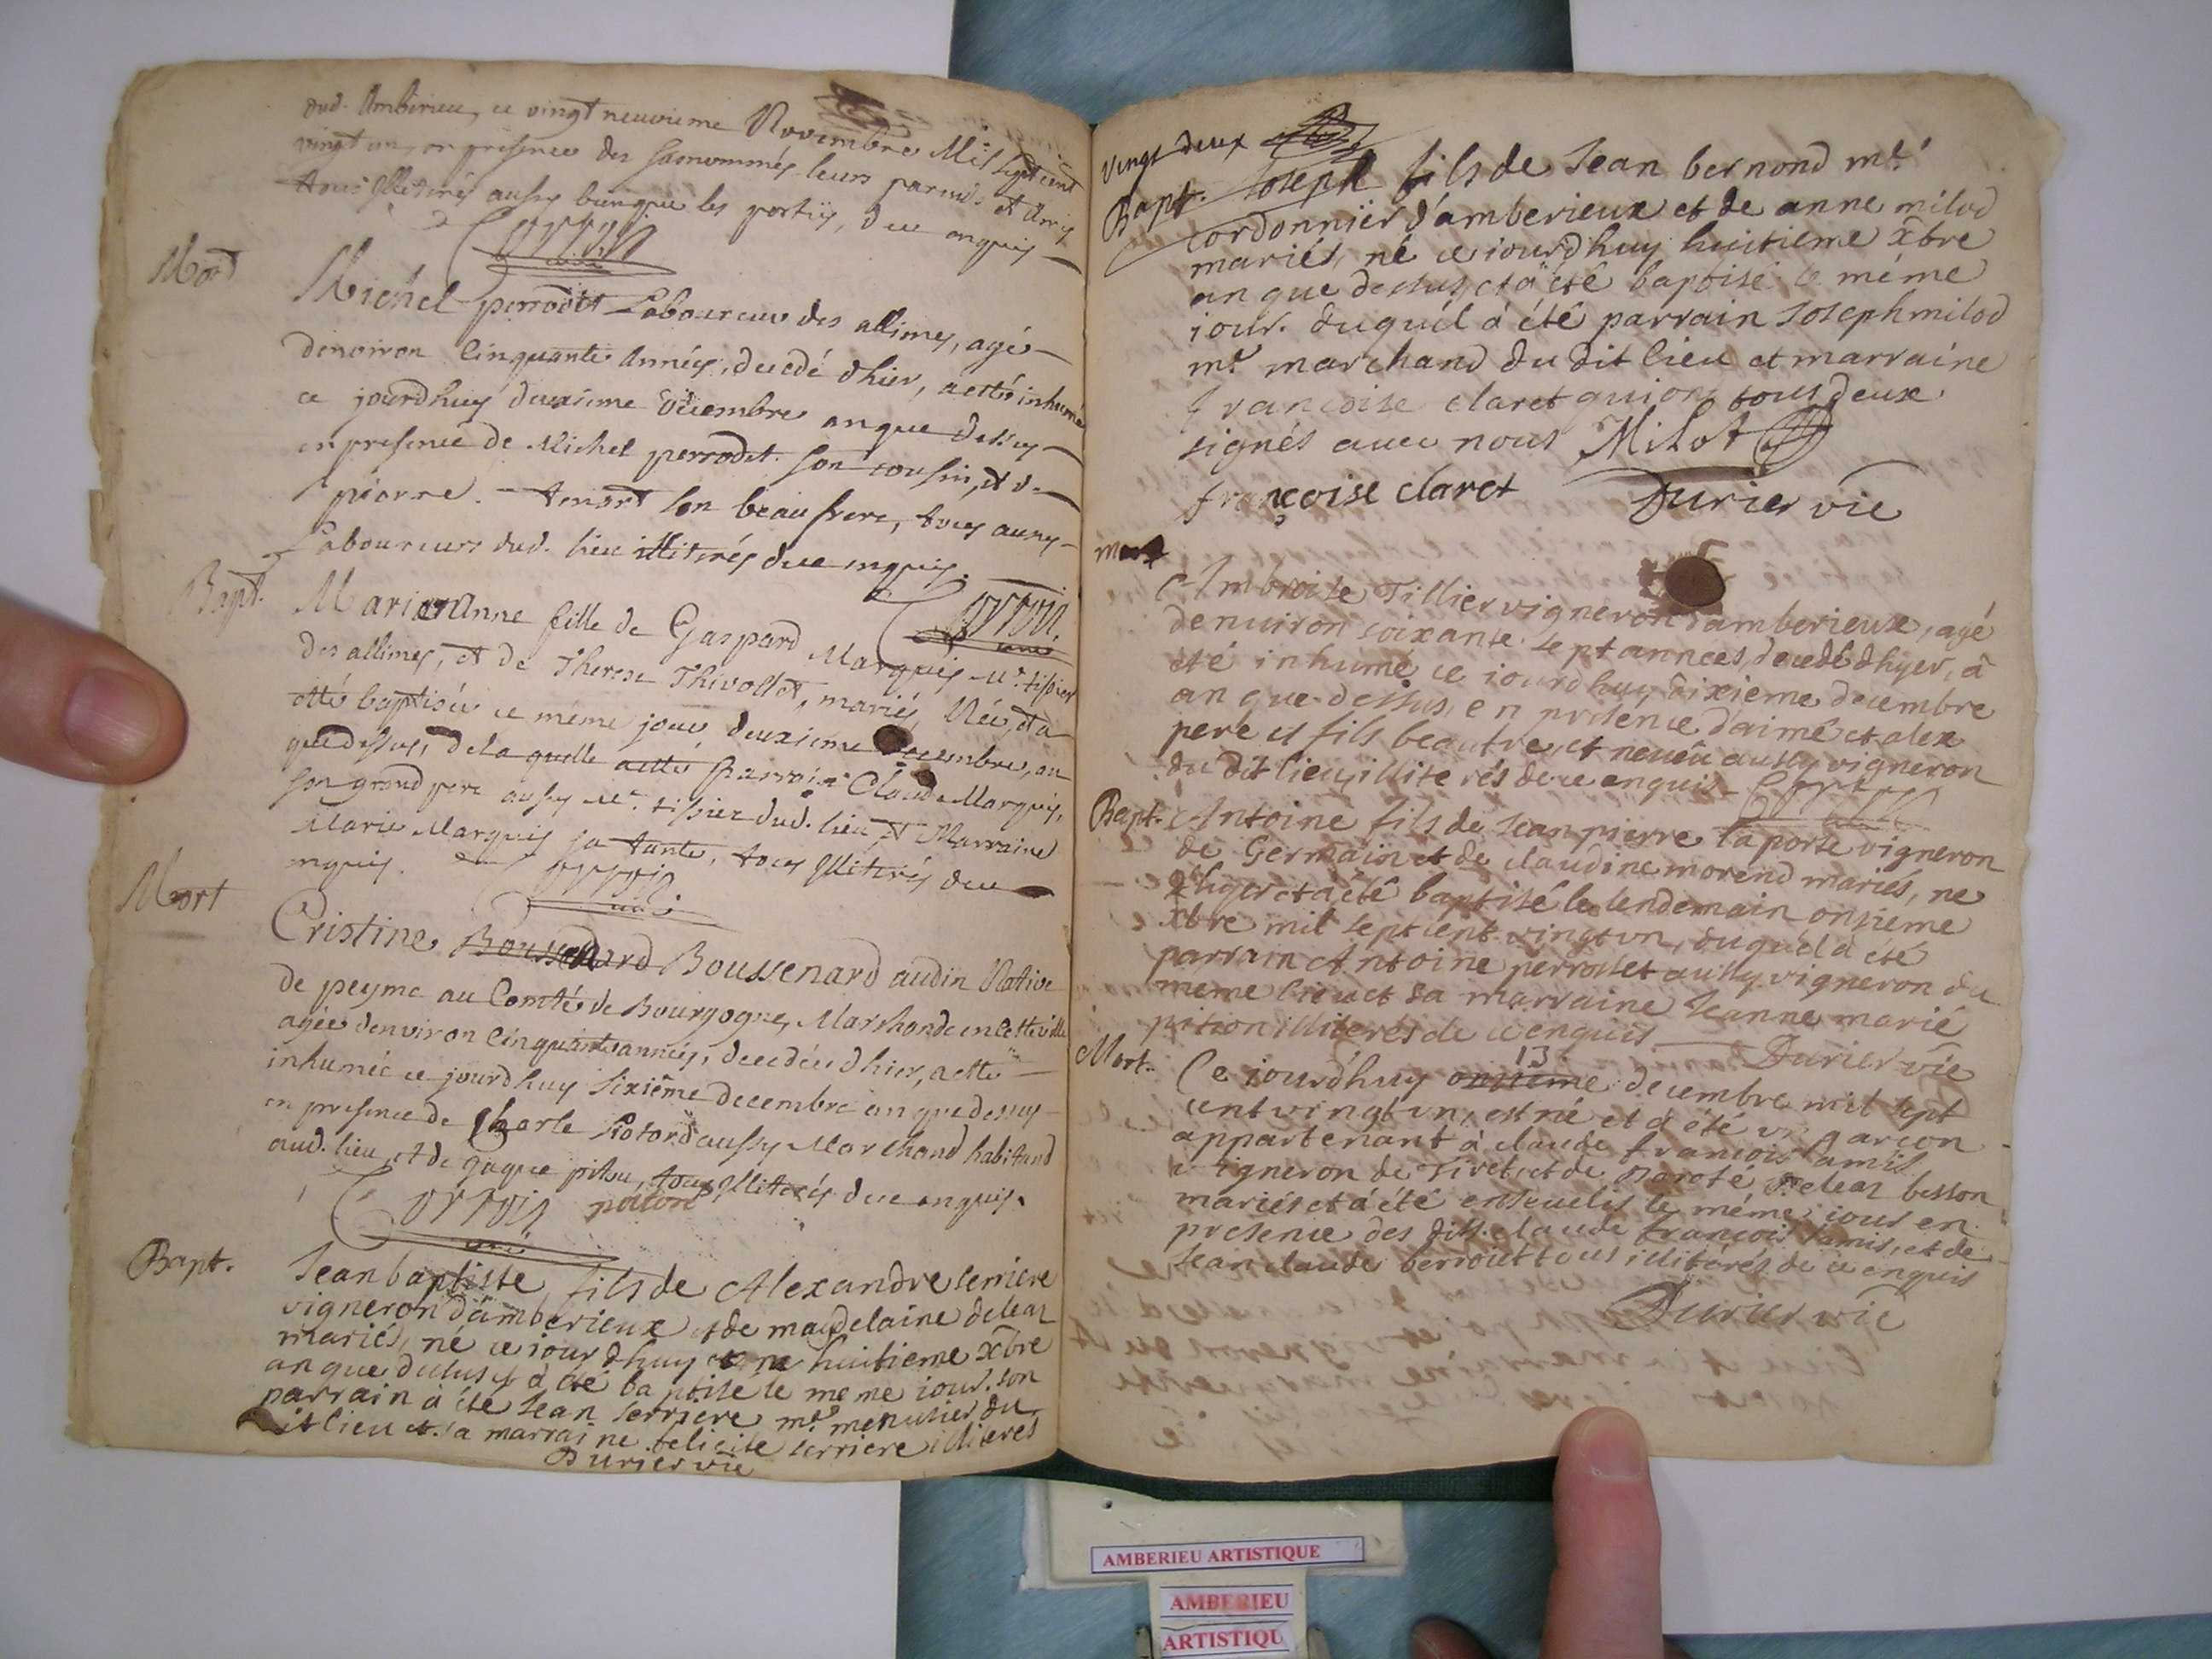 dud. Ambérieu, ce vingt neuvieme Novembre Mil sept cent
vingt un, en presence des sasnommés leurs parens et Amis
tous Illiterés aussy bien que les partiës, de ce enquis
Mort
Michel perrodet Laboureur des allimes, agé
d'environ Cinquante Années, decedé d'hier, a esté inhumé
ce jourd'huy deuxieme Decembre an que dessus
en presence de Michel perrodet son cousin, et de
pierre tenard son beau frere, tous aussy
Laboureurs dud. lieu illiterés de ce enquis.
Bapt.
Marie Anne fille de Gaspard Marquis Mr. tissier
des allimes, et de Therese Thivollet, mariés, Née, et a
esté baptisée ce même jour deuxieme decembre, an
que dessus, de la quelle a esté parrain Claude Marquis,
son grand pere aussy Mr. tissier dud. lieu et Marraine
Marie Marquis sa tante, tous Illiterés de ce
enquis.
Mort
Cristine Boussenard Boussenard audin Native
de peyme au Comté de Bourgogne, Marchande en cette ville
agée d'environ Cinquante années, decedée d'hier, a esté
inhumée ce jourd'huy sixiême decembre an que dessus
en presence de Charle aussy Marchand habitand
aud. lieu, et de pitou, tous Illiterés de ce enquis.
Bapt.
Jean baptiste, fils de Alexandre serriere
vigneron d'amberieux et de maudelaine deleaz
mariés, né ce jourdhuy huitieme xbre
an que dessus et a été baptisé le meme jour. son
parrain à été Jean serriere mr. menusier du
dit lieu et sa marraine felicite serriere illiteres
Durier vie
vingt deux
Bapt. Joseph fils de Jean bernond mr.
Cordonniër d'amberieux et de anne milod
mariés, né ce jourd'huy huitieme xbre
an que dessus, et a été baptisé le même
jour. duquél à été parrain Joseph milod
mr. marchand du dit lieu et marraine
françoise claret qui ont tous deux
signés avec nous Milot
françoise claret Durier vie
mort
Ambroise Tillier vigneron d'amberieux, agé
denuiron soixante sept années, decedé dhyer, à
été inhumé ce jourd'huy dixieme decembre
an que dessus, en presence d'aimé et alex
pere et fils beaufre, et neveu aussy vigneron
du dit lieu, illiterés de ce enquis
Bapt. Antoine fils de Jean pierre laporte vigneron
de Germain et de claudine morend mariés, ne
d'hyer et a été baptisé le lendemain onzieme
xbre mil sept cent vingt un, duquél à été
parrain Antoine perrodet aussy vigneron du
meme lieu et sa marraine Jeanne marie
pition illiterés de ce enquis Durier vie
Mort.
13
Ce jourd'huy onzieme decembre mil sept
cent vingt un, est né et a été un garçon
appartenant à claude françois lamis
vigneron de Tiret, et de deleaz besson
mariés et à été enseuelis le même jour en
presence des dits claude françois lamis, et de
Jean claude berrodet tous illitérés de ce enquis
Durier vie
AMBERIEU ARTISTIQUE
AMBERIEU
ARTISTIQU